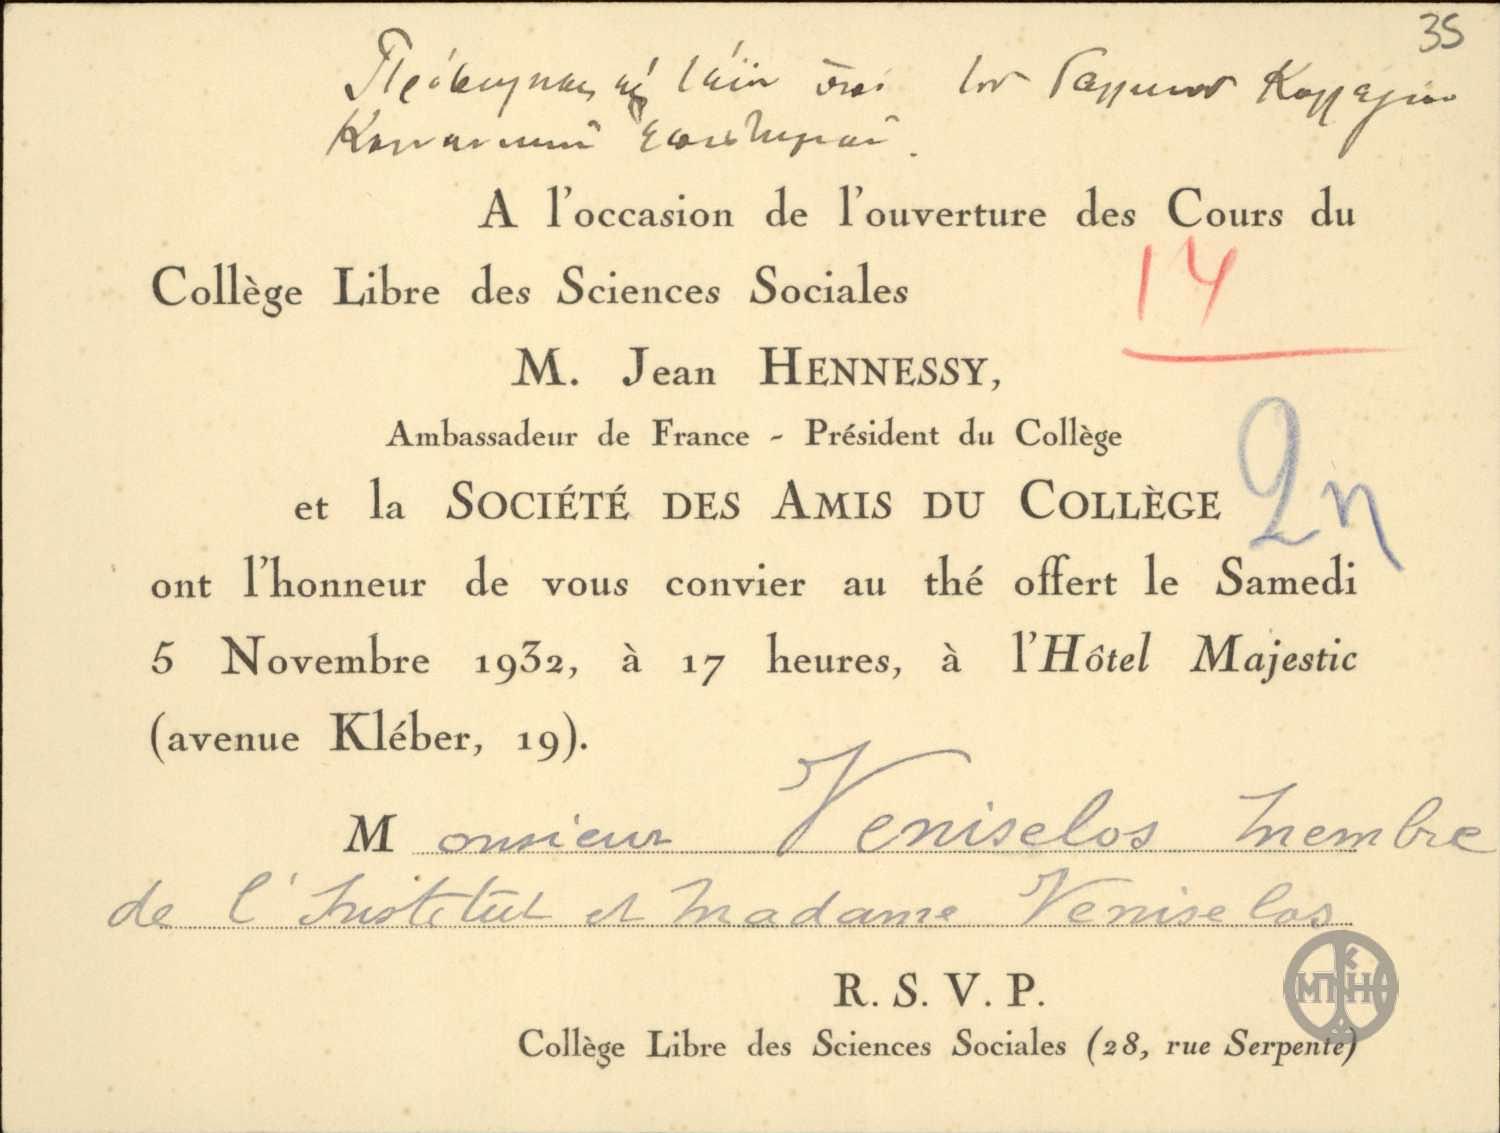 35
Πρόσκλησις εἰς τέϊον ὑπὸ τοῦ Γαλλικοῦ Κολλεγίου
Κοινωνικῶν Ἐπιστημῶν.
A l'occasion de l'ouverture des Cours du
Collège Libre des Sciences Sociales
14
M. Jean HENNESSY,
Ambassadeur de France - Président du Collège
et la SOCIÉTÉ DES AMIS DU COLLÈGE
ont l'honneur de vous convier au thé offert le Samedi
5 Novembre 1932, à 17 heures, à l'Hôtel Majestic
(avenue Kléber, 19).
Monsieur Veniselos Membre
de l'Institut et Madame Veniselos
R. S. V. P.
Collège Libre des Sciences Sociales (28, rue Serpente)